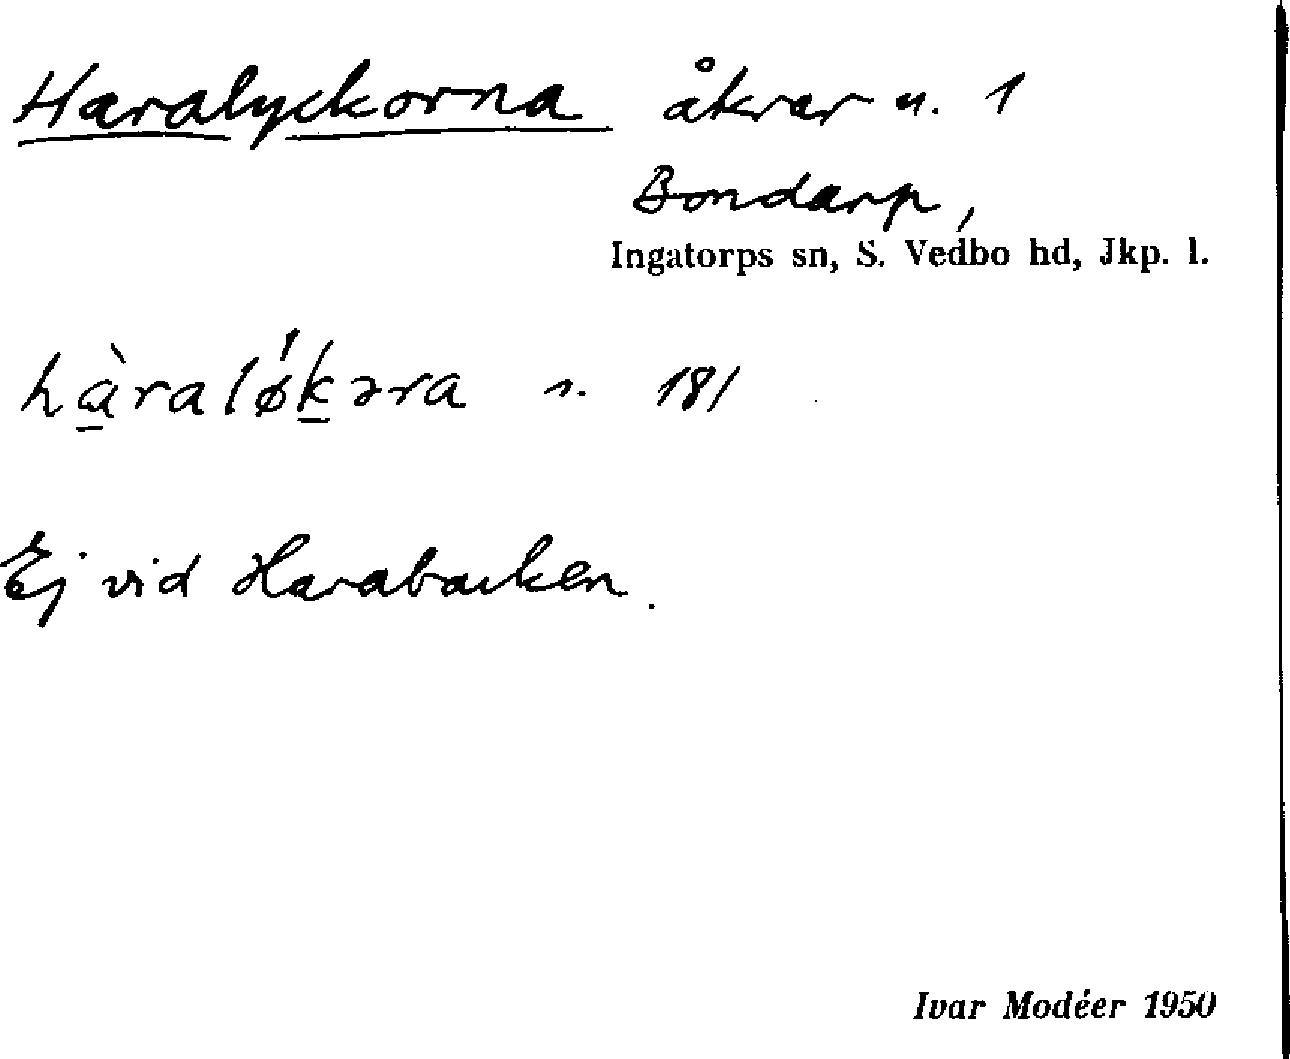 Haralyckorna åkrar u. 1
Bondarp,
Ingatorps sn, S. Vedbo hd, Jkp. l.
hàraløkəra s. 181
Ej vid Harabacken.
Ivar Modéer 1950